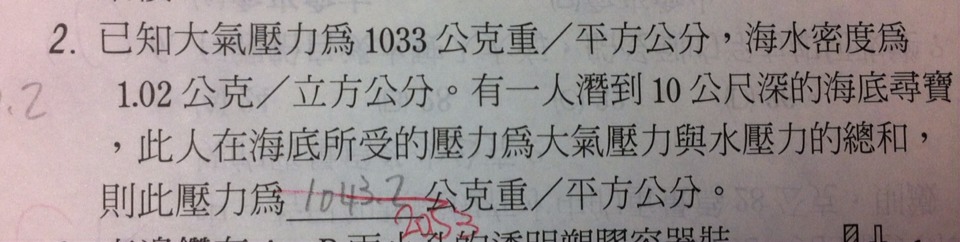 2. 已知大氣壓力為 1033 公克重／平方公分，海水密度為
1.02 公克／立方公分。有一人潛到 10 公尺深的海底尋寶
，此人在海底所受的壓力為大氣壓力與水壓力的總和，
則此壓力為 1043.2 公克重／平方公分。
2053